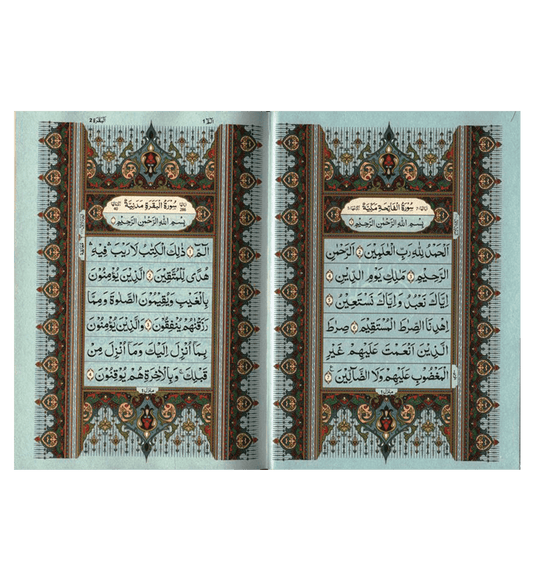 سُورَةُ الْفَاتِحَةِ مَكِّيَّةٌ
بِسْمِ اللّٰهِ الرَّحْمٰنِ الرَّحِيْمِ
اَلْحَمْدُ لِلّٰهِ رَبِّ الْعٰلَمِيْنَ ۝۱ الرَّحْمٰنِ
الرَّحِيْمِ ۝۲ مٰلِكِ يَوْمِ الدِّيْنِ ۝۳
اِيَّاكَ نَعْبُدُ وَاِيَّاكَ نَسْتَعِيْنُ ۝۴
اِهْدِنَا الصِّرَاطَ الْمُسْتَقِيْمَ ۝۵ صِرَاطَ
الَّذِيْنَ اَنْعَمْتَ عَلَيْهِمْ غَيْرِ
الْمَغْضُوْبِ عَلَيْهِمْ وَلَا الضَّآلِّيْنَ ۝۷
البقرة ٢
الٓمّٓ ١
سُورَةُ الْبَقَرَةِ مَدَنِيَّةٌ
بِسْمِ اللّٰهِ الرَّحْمٰنِ الرَّحِيْمِ
الٓمّٓ ۝۱ ذٰلِكَ الْكِتٰبُ لَا رَيْبَ ۛ فِيْهِ ۛ
هُدًى لِّلْمُتَّقِيْنَ ۝۲ الَّذِيْنَ يُؤْمِنُوْنَ
بِالْغَيْبِ وَيُقِيْمُوْنَ الصَّلٰوةَ وَمِمَّا
رَزَقْنٰهُمْ يُنْفِقُوْنَ ۝۳ وَالَّذِيْنَ يُؤْمِنُوْنَ
بِمَآ اُنْزِلَ اِلَيْكَ وَمَآ اُنْزِلَ مِنْ
قَبْلِكَ ۚ وَبِالْاٰخِرَةِ هُمْ يُوْقِنُوْنَ ۝۴